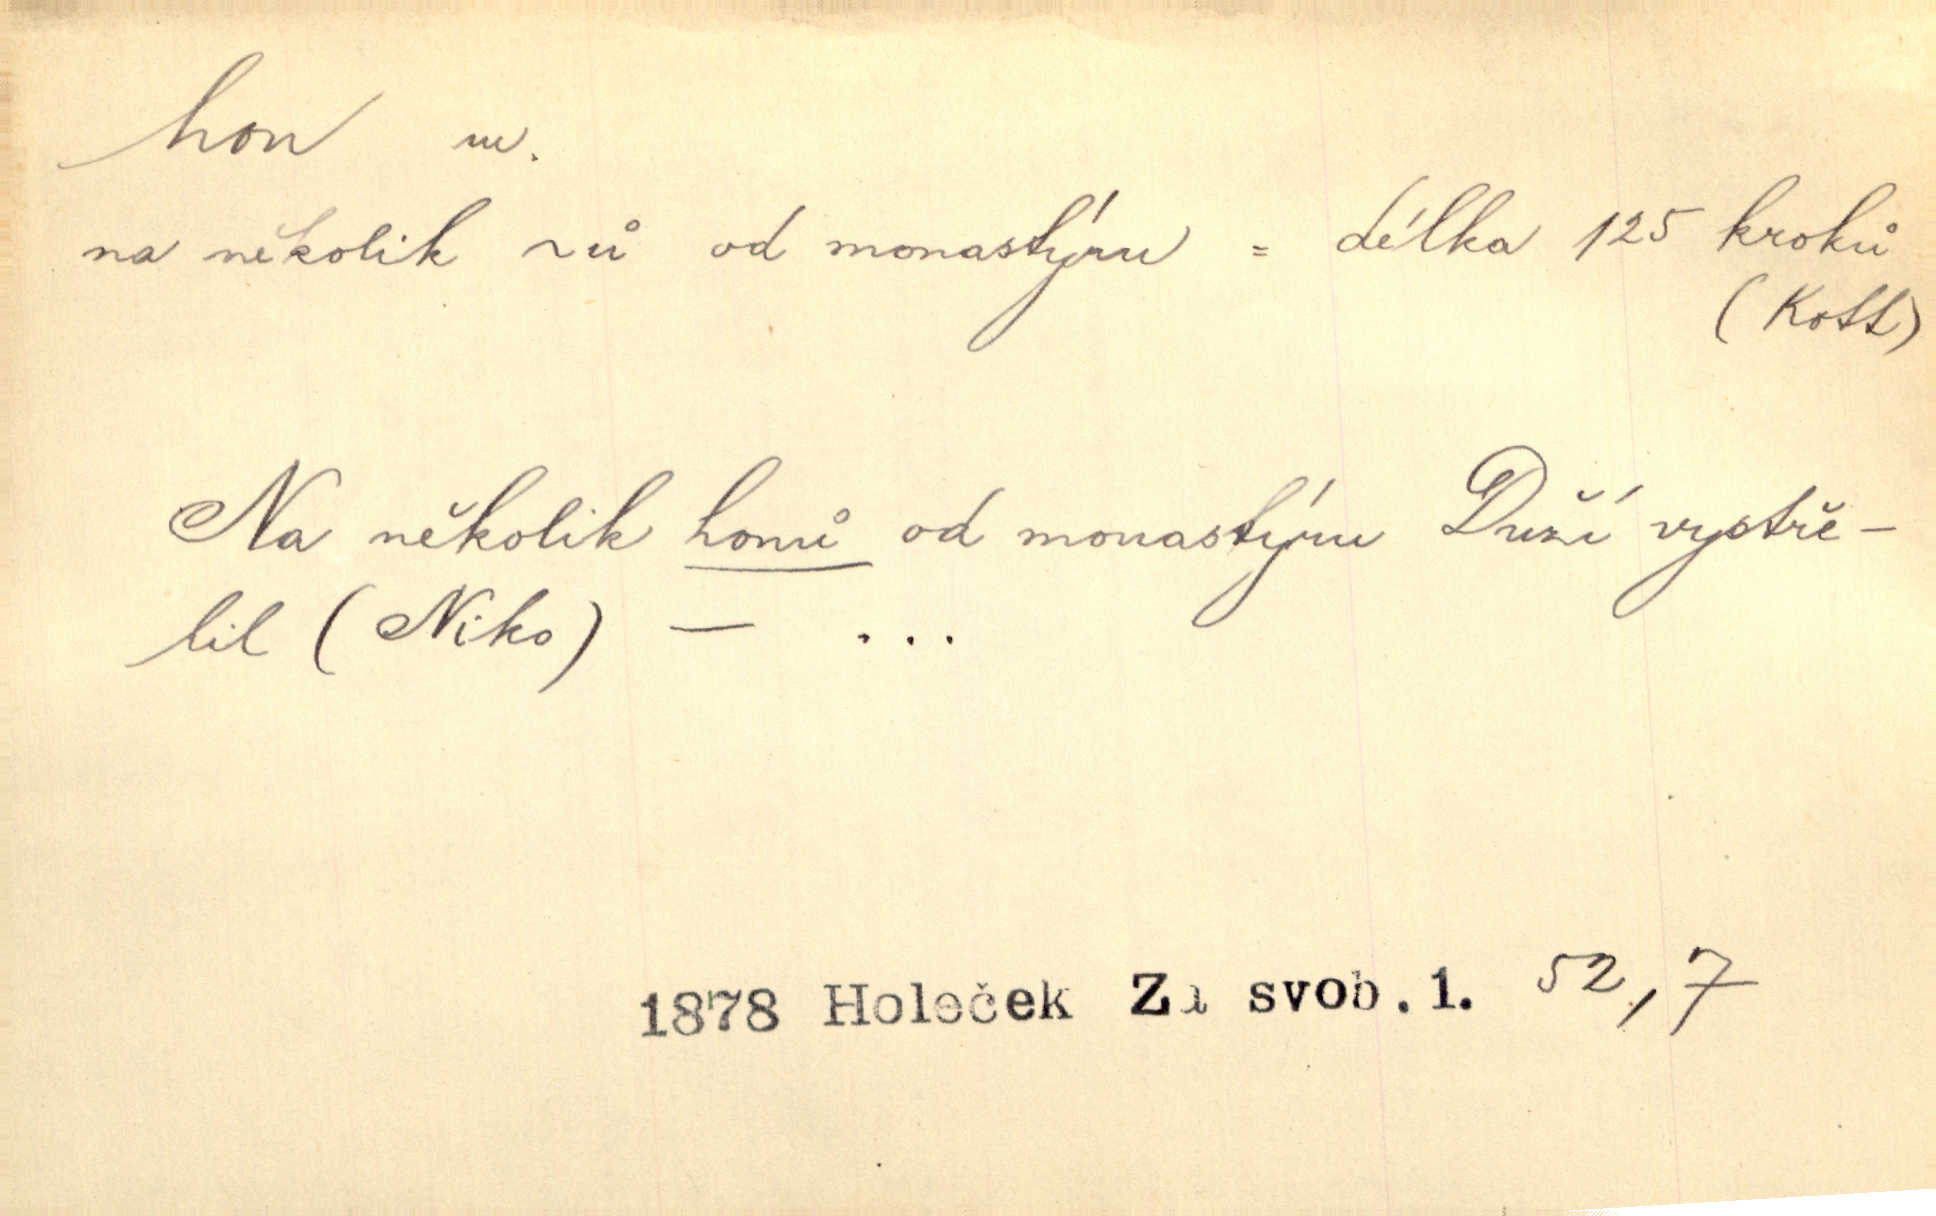 hon m.
na několik ~ů od monastýru = délka 125 kroků
(Kott)
Na několik honů od monastýru Duží vystře-
lil (Niko) — ...
1878 Holeček Za svob. 1. 52,7